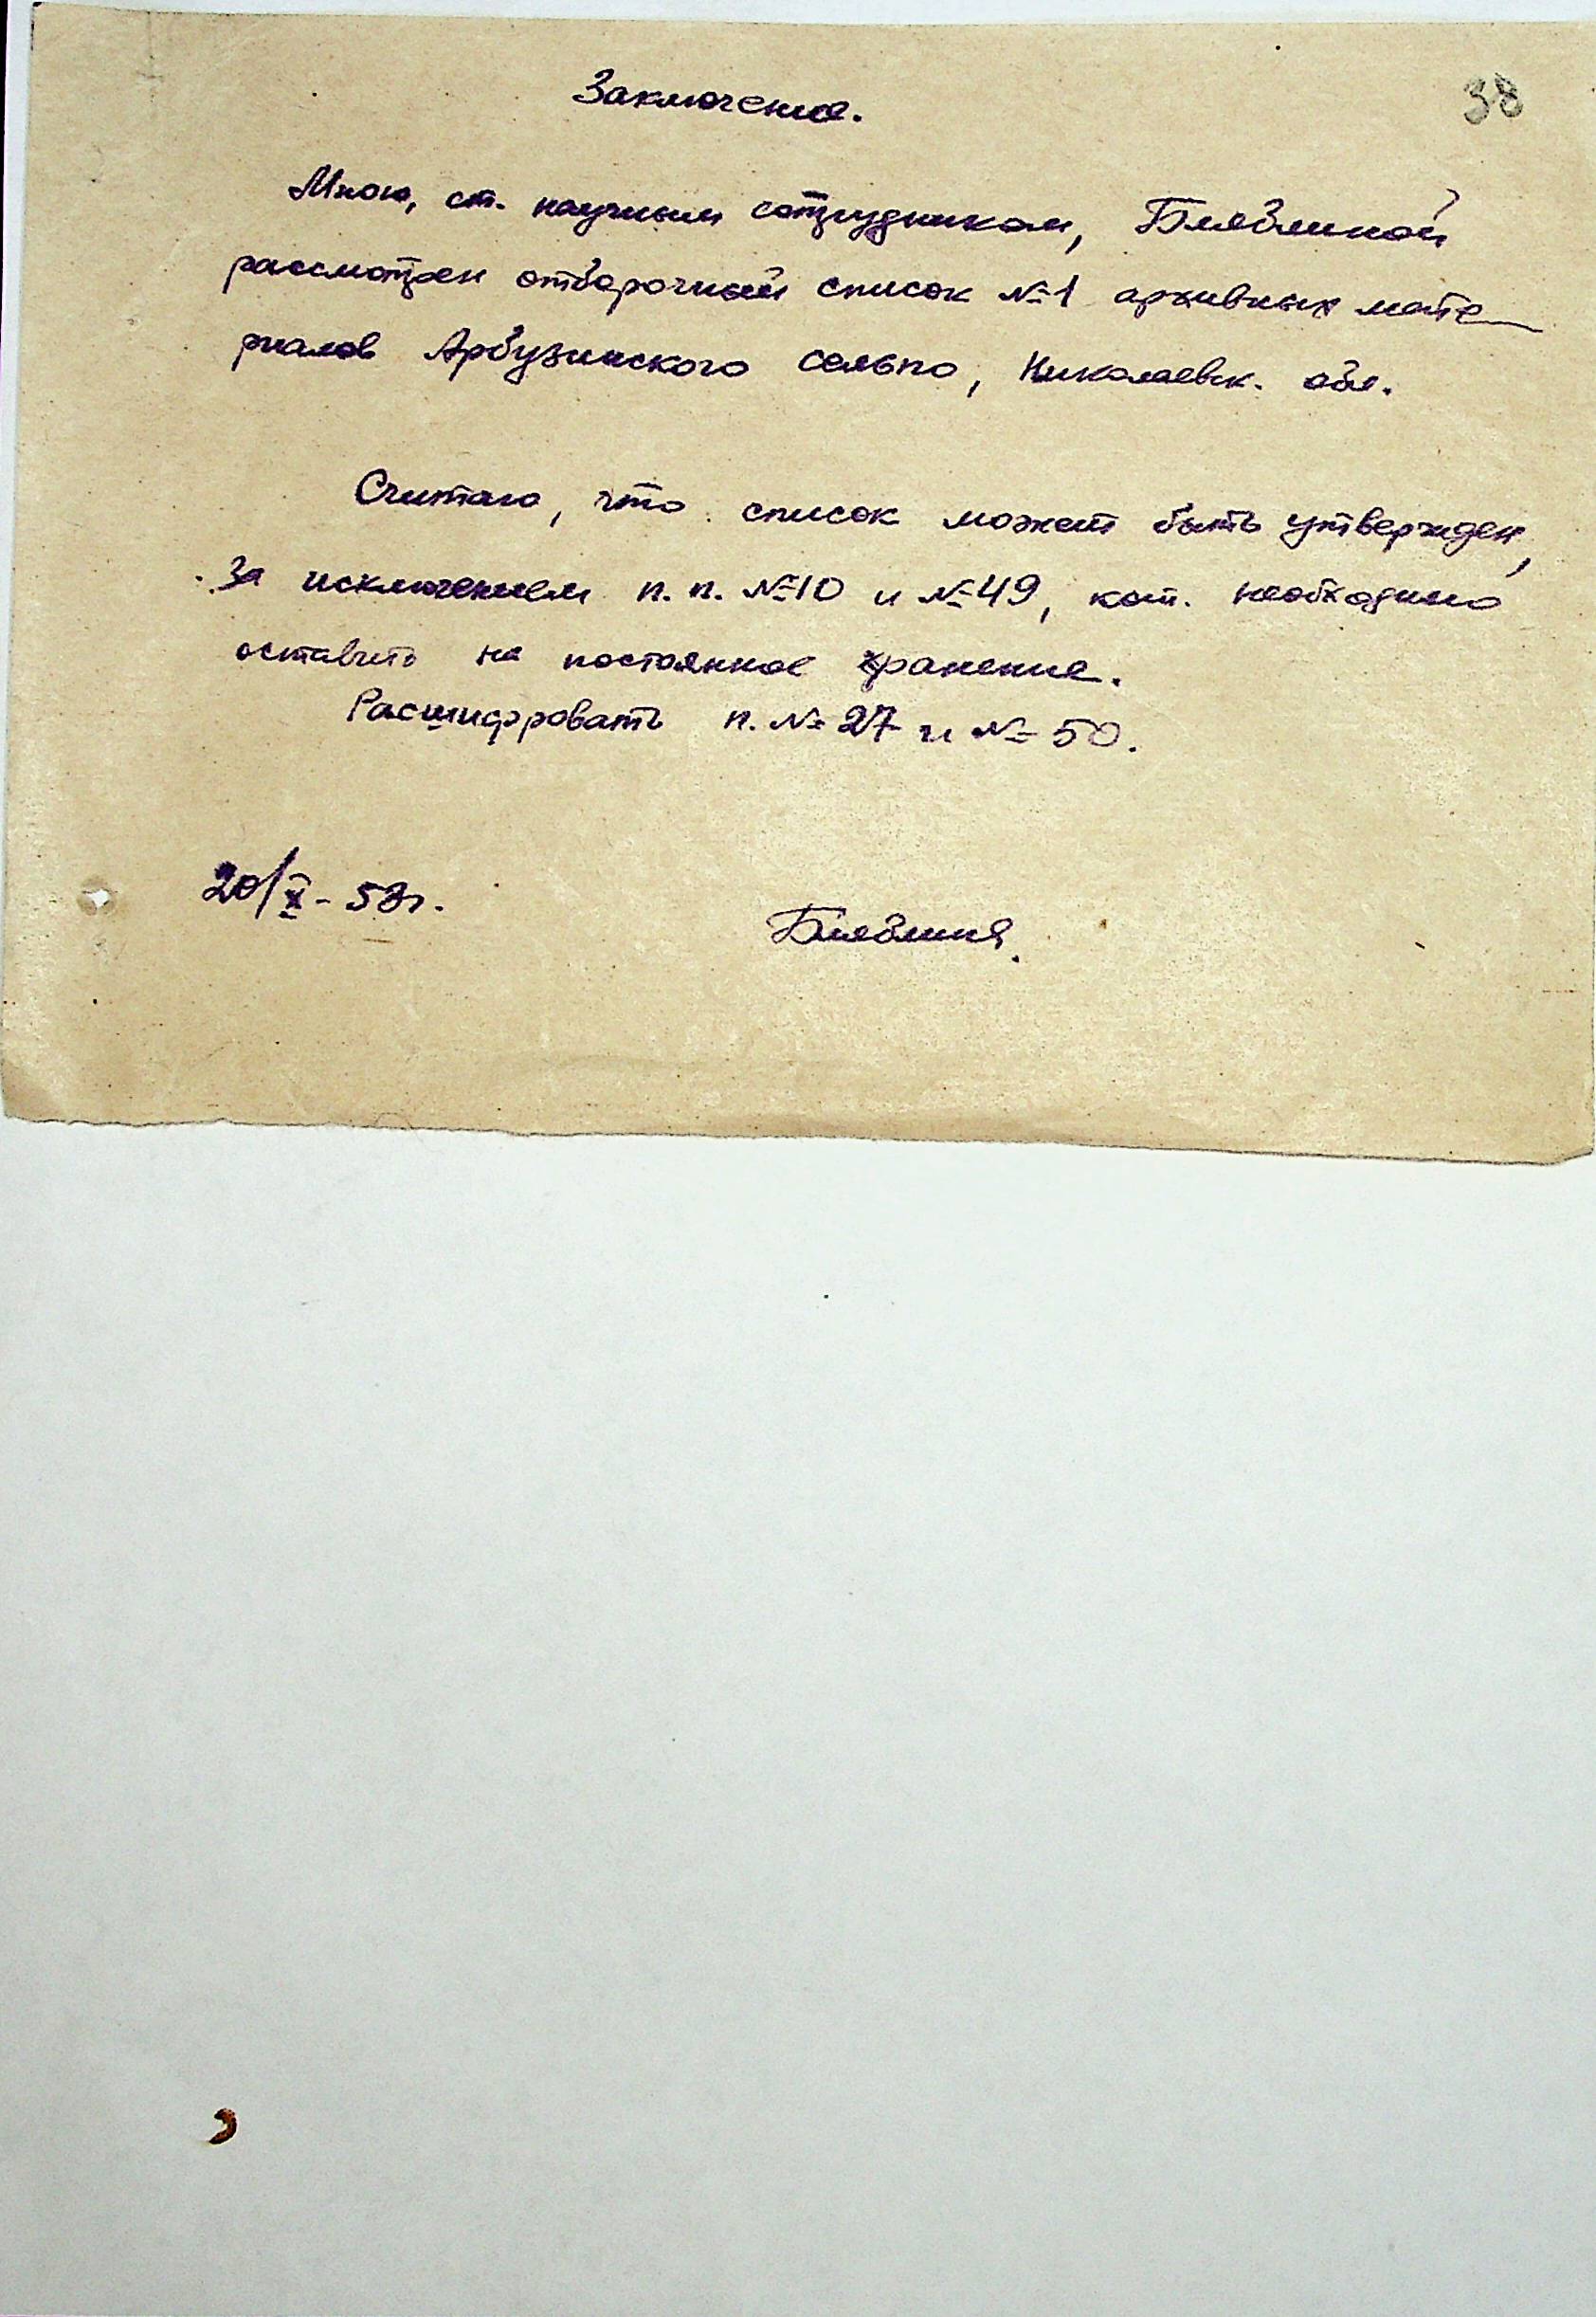 38
Заключение.
Мною, ст. научным сотрудником,
рассмотрен отборочный список №1 архивных мате
риалов Арбузинского сельпо, Николаевск. обл.
Считаю, что список может быть утвержден,
за исключением п.п. №10 и №49, кот. необходимо
оставить на постоянное хранение.
Расшифровать п. № 27 и № 50.
20/X - 53г.